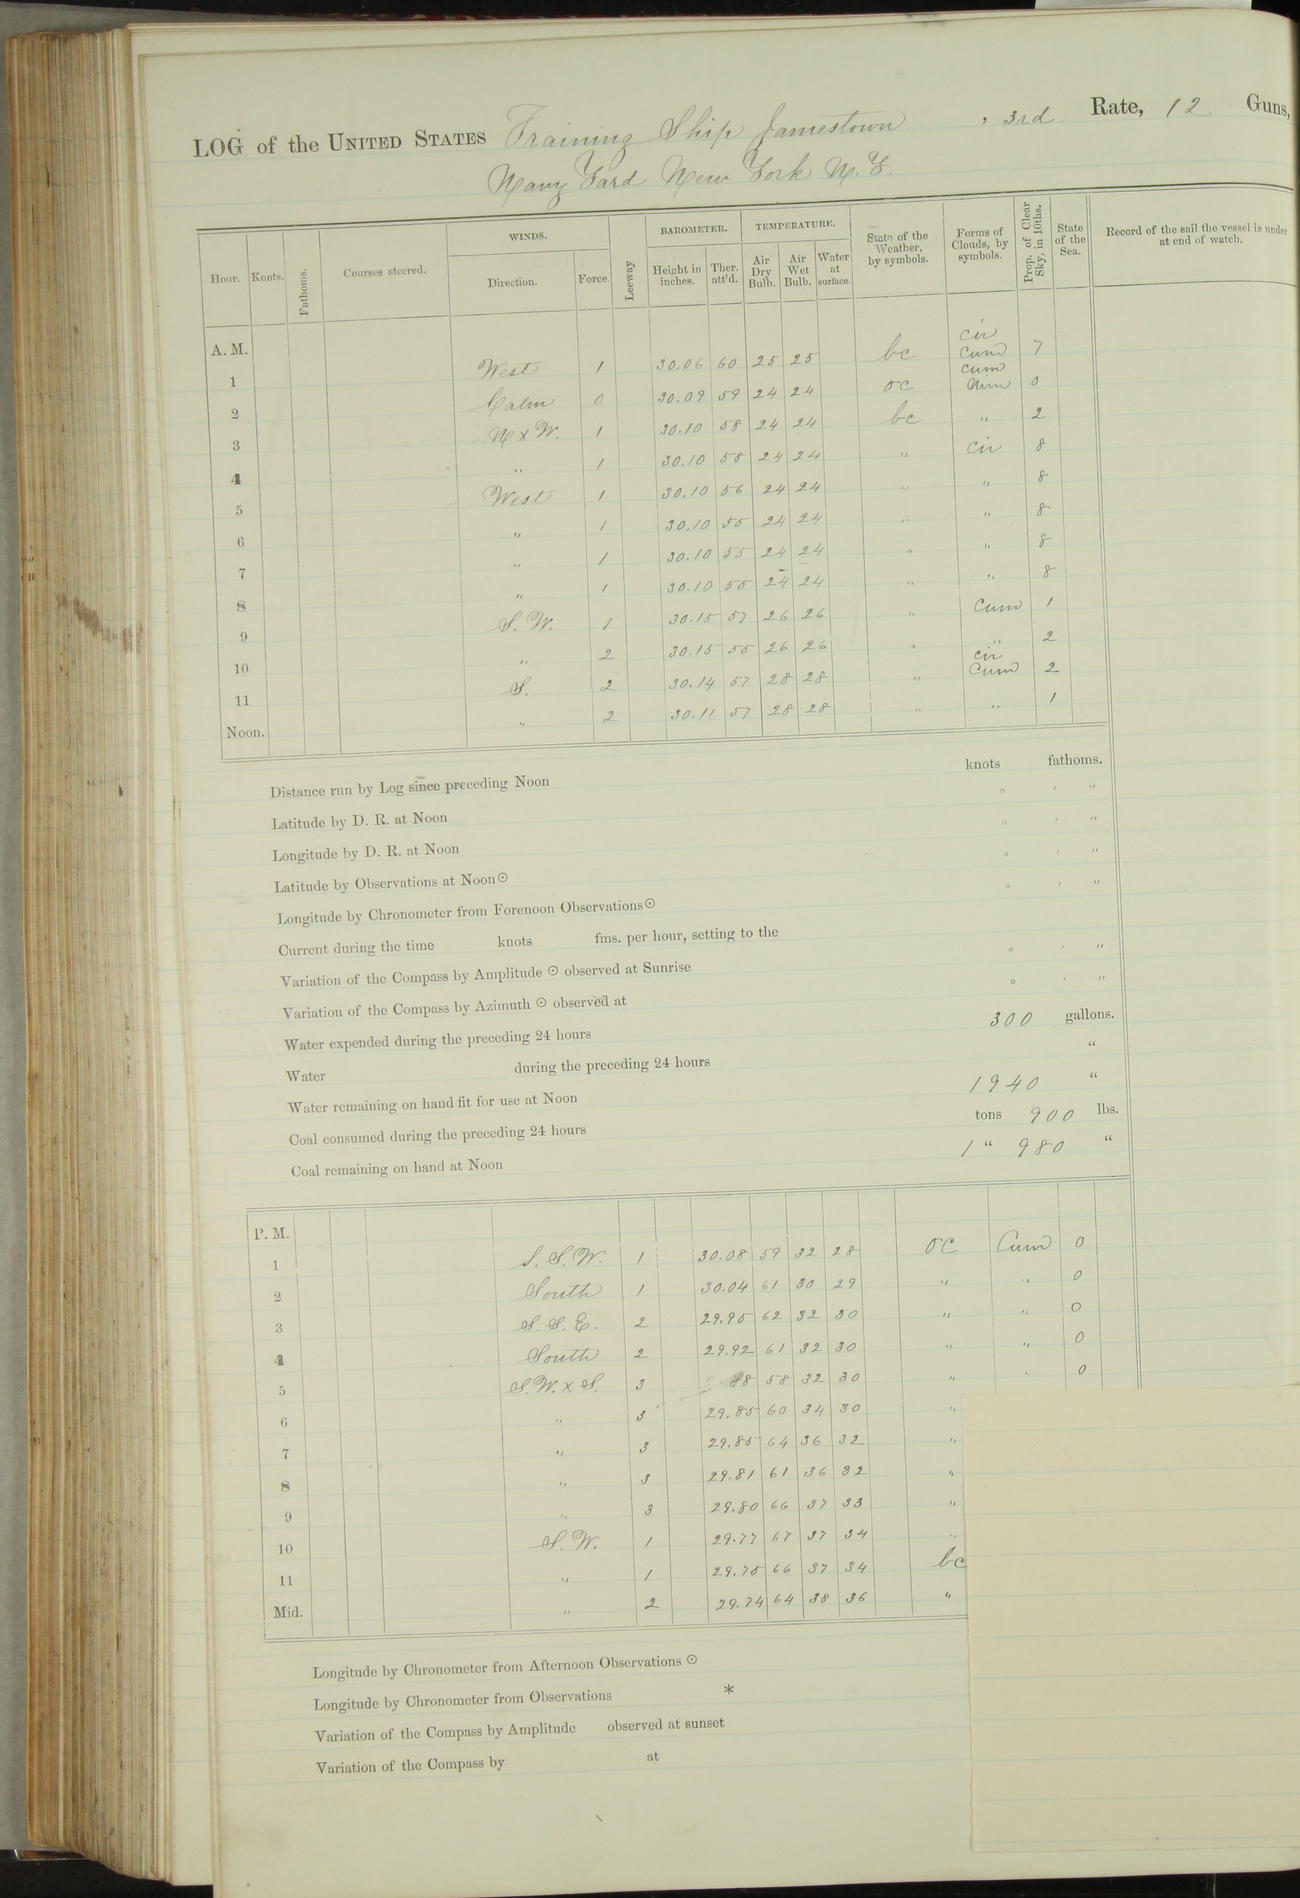 LOG of the UNITED STATES Training Ship Jamestown , 3rd Rate, 12 Guns,
Navy Yard New York N.Y.
Hour. Knots. Fathoms. Courses steered. WINDS. Direction. Force. Leeway BAROMETER. Height in inches. Ther. att'd. TEMPERATURE. Air Dry Bulb. Air Wet Bulb. Water at surface. State of the Weather, by symbols. Forms of Clouds, by symbols. Prop. of Clear Sky, in 10ths. State of the Sea. Record of the sail the vessel is under at end of watch.
A. M.
1 West 1 30.06 60 25 25 bc cir cum 7
2 Calm 0 30.09 59 24 24 oc cum Nim 0
3 N x W. 1 30.10 58 24 24 bc " 2
4 " 1 30.10 58 24 24 " cir 8
5 West 1 30.10 56 24 24 " " 8
6 " 1 30.10 55 24 24 " " 8
7 " 1 30.10 55 24 24 " " 8
8 " 1 30.10 55 24 24 " " 8
9 S.W. 1 30.15 57 26 26 " Cum 1
10 " 2 30.15 55 26 26 " " 2
11 S. 2 30.14 57 28 28 " cir Cum 2
Noon. " 2 30.11 57 28 28 " " 1
Distance run by Log since preceding Noon knots fathoms.
Latitude by D. R. at Noon ° ' "
Longitude by D. R. at Noon ° ' "
Latitude by Observations at Noon ☉ ° ' "
Longitude by Chronometer from Forenoon Observations ☉ ° ' "
Current during the time knots fms. per hour, setting to the
Variation of the Compass by Amplitude ☉ observed at Sunrise ° ' "
Variation of the Compass by Azimuth ☉ observed at ° ' "
Water expended during the preceding 24 hours 300 gallons.
Water during the preceding 24 hours "
Water remaining on hand fit for use at Noon 1940 "
Coal consumed during the preceding 24 hours tons 900 lbs.
Coal remaining on hand at Noon 1 " 980 "
P. M.
1 S.S.W. 1 30.08 59 32 28 oc Cum 0
2 South 1 30.04 61 30 29 " " 0
3 S.S.E. 2 29.95 62 32 30 " " 0
4 South 2 29.92 61 32 30 " " 0
5 S.W. x S. 3 88 58 32 30 " " 0
6 " 3 29.85 60 34 30 "
7 " 3 29.85 64 36 32 "
8 " 3 29.81 61 36 32 "
9 " 3 29.80 66 37 33 "
10 S.W. 1 29.77 67 37 34 "
11 " 1 29.75 66 37 34 bc
Mid. " 2 29.74 64 38 36 "
Longitude by Chronometer from Afternoon Observations ☉
Longitude by Chronometer from Observations *
Variation of the Compass by Amplitude observed at sunset
Variation of the Compass by at